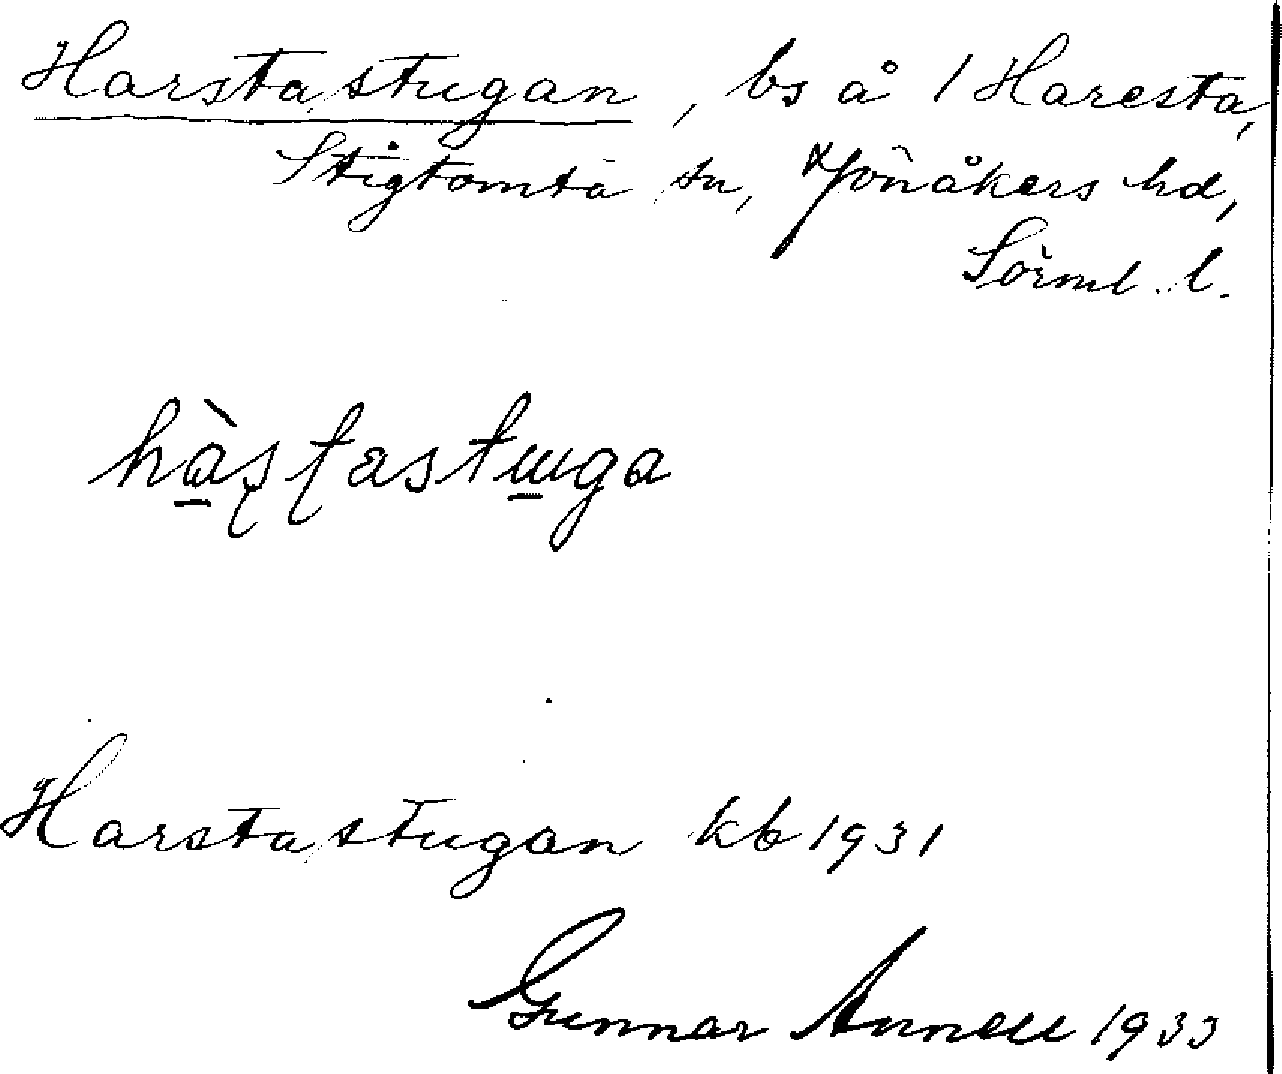 Harstastugan, bs å 1 Haresta,
Stigtomta sn, Jönåkers hd,
Sörml. l.
hàʂʈastɯga
Harstastugan kb 1931
Gunnar Annell 1933